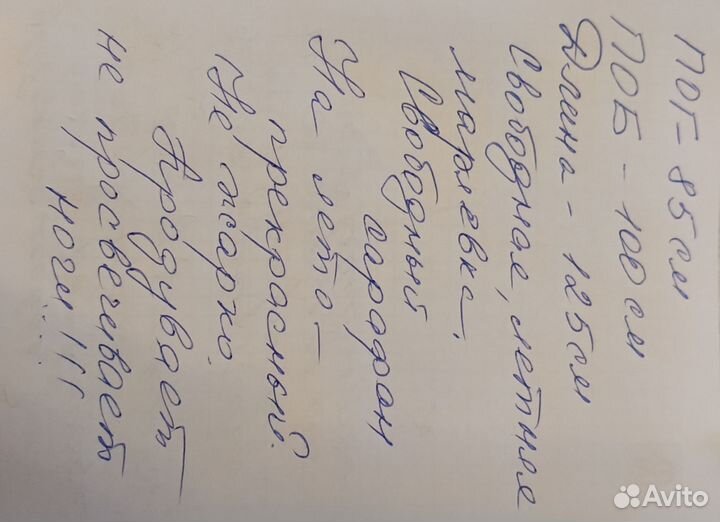 ПОГ - 85 см
ПОБ - 100 см
Длина - 125 см
Свободная, летняя
марлевка,
Свободный
сарафан
На лето -
прекрасный.
Не жарко.
Продувает
не просвечивает
ноги!!!
Avito